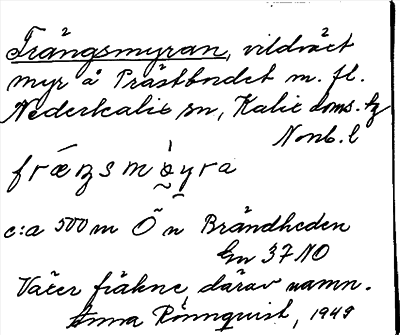 Frängsmyran, vildväxt
myr å Prästbordet m. fl.
Nederkalix sn, Kalix doms. tg
Norrb. l
fræŋsmy̌ra
c:a 500 m Ö n Brändheden
Gn 37 NO
Växer fräkne, därav namn.
Anna Rönnquist, 1949